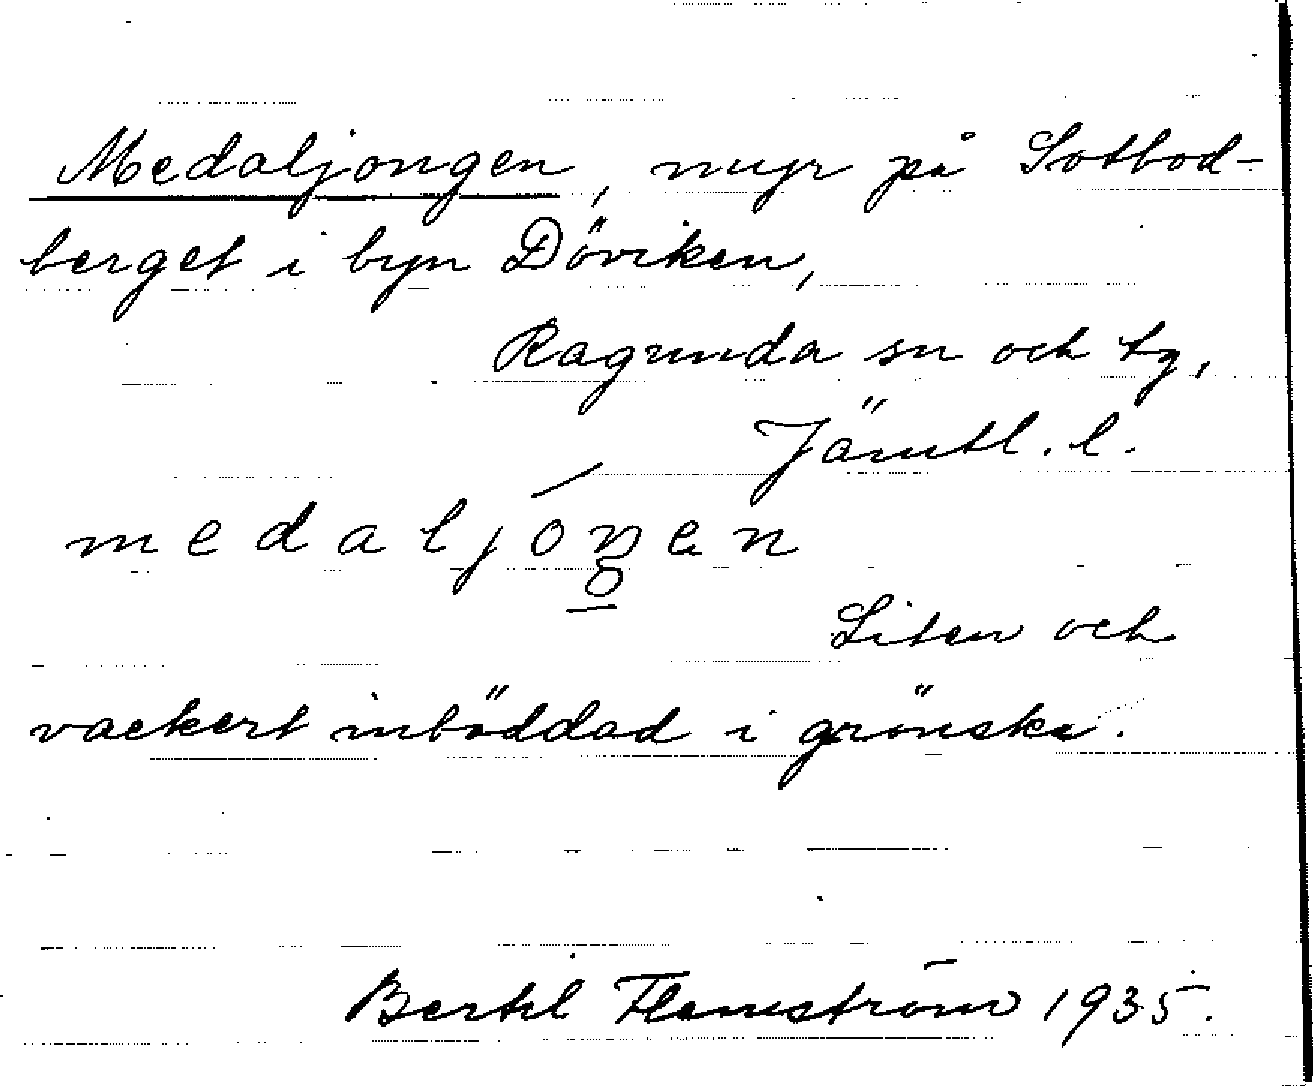 Medaljongen, myr på Sotbod-
berget i byn Döviken,
Ragunda sn och tg,
Jämtl. l.
medaljóŋen
Liten och
vackert inbäddad i grönska.
Bertil Flemström 1935.